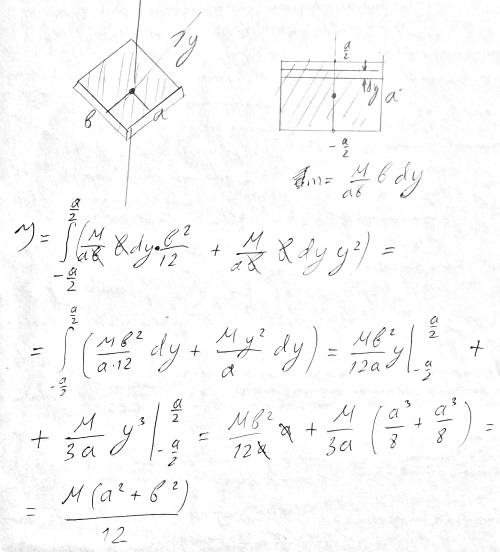 y
в a
a/2
dy a
-a/2
dm = M/aв в dy
J = ∫_{-a/2}^{a/2} (M/aв в dy · в²/12 + M/aв в dy y²) =
= ∫_{-a/2}^{a/2} (Mв²/a·12 dy + My²/a dy) = Mв²/12a y |_{-a/2}^{a/2} +
+ M/3a y³ |_{-a/2}^{a/2} = Mв²/12a a + M/3a (a³/8 + a³/8) =
= M(a² + в²)/12